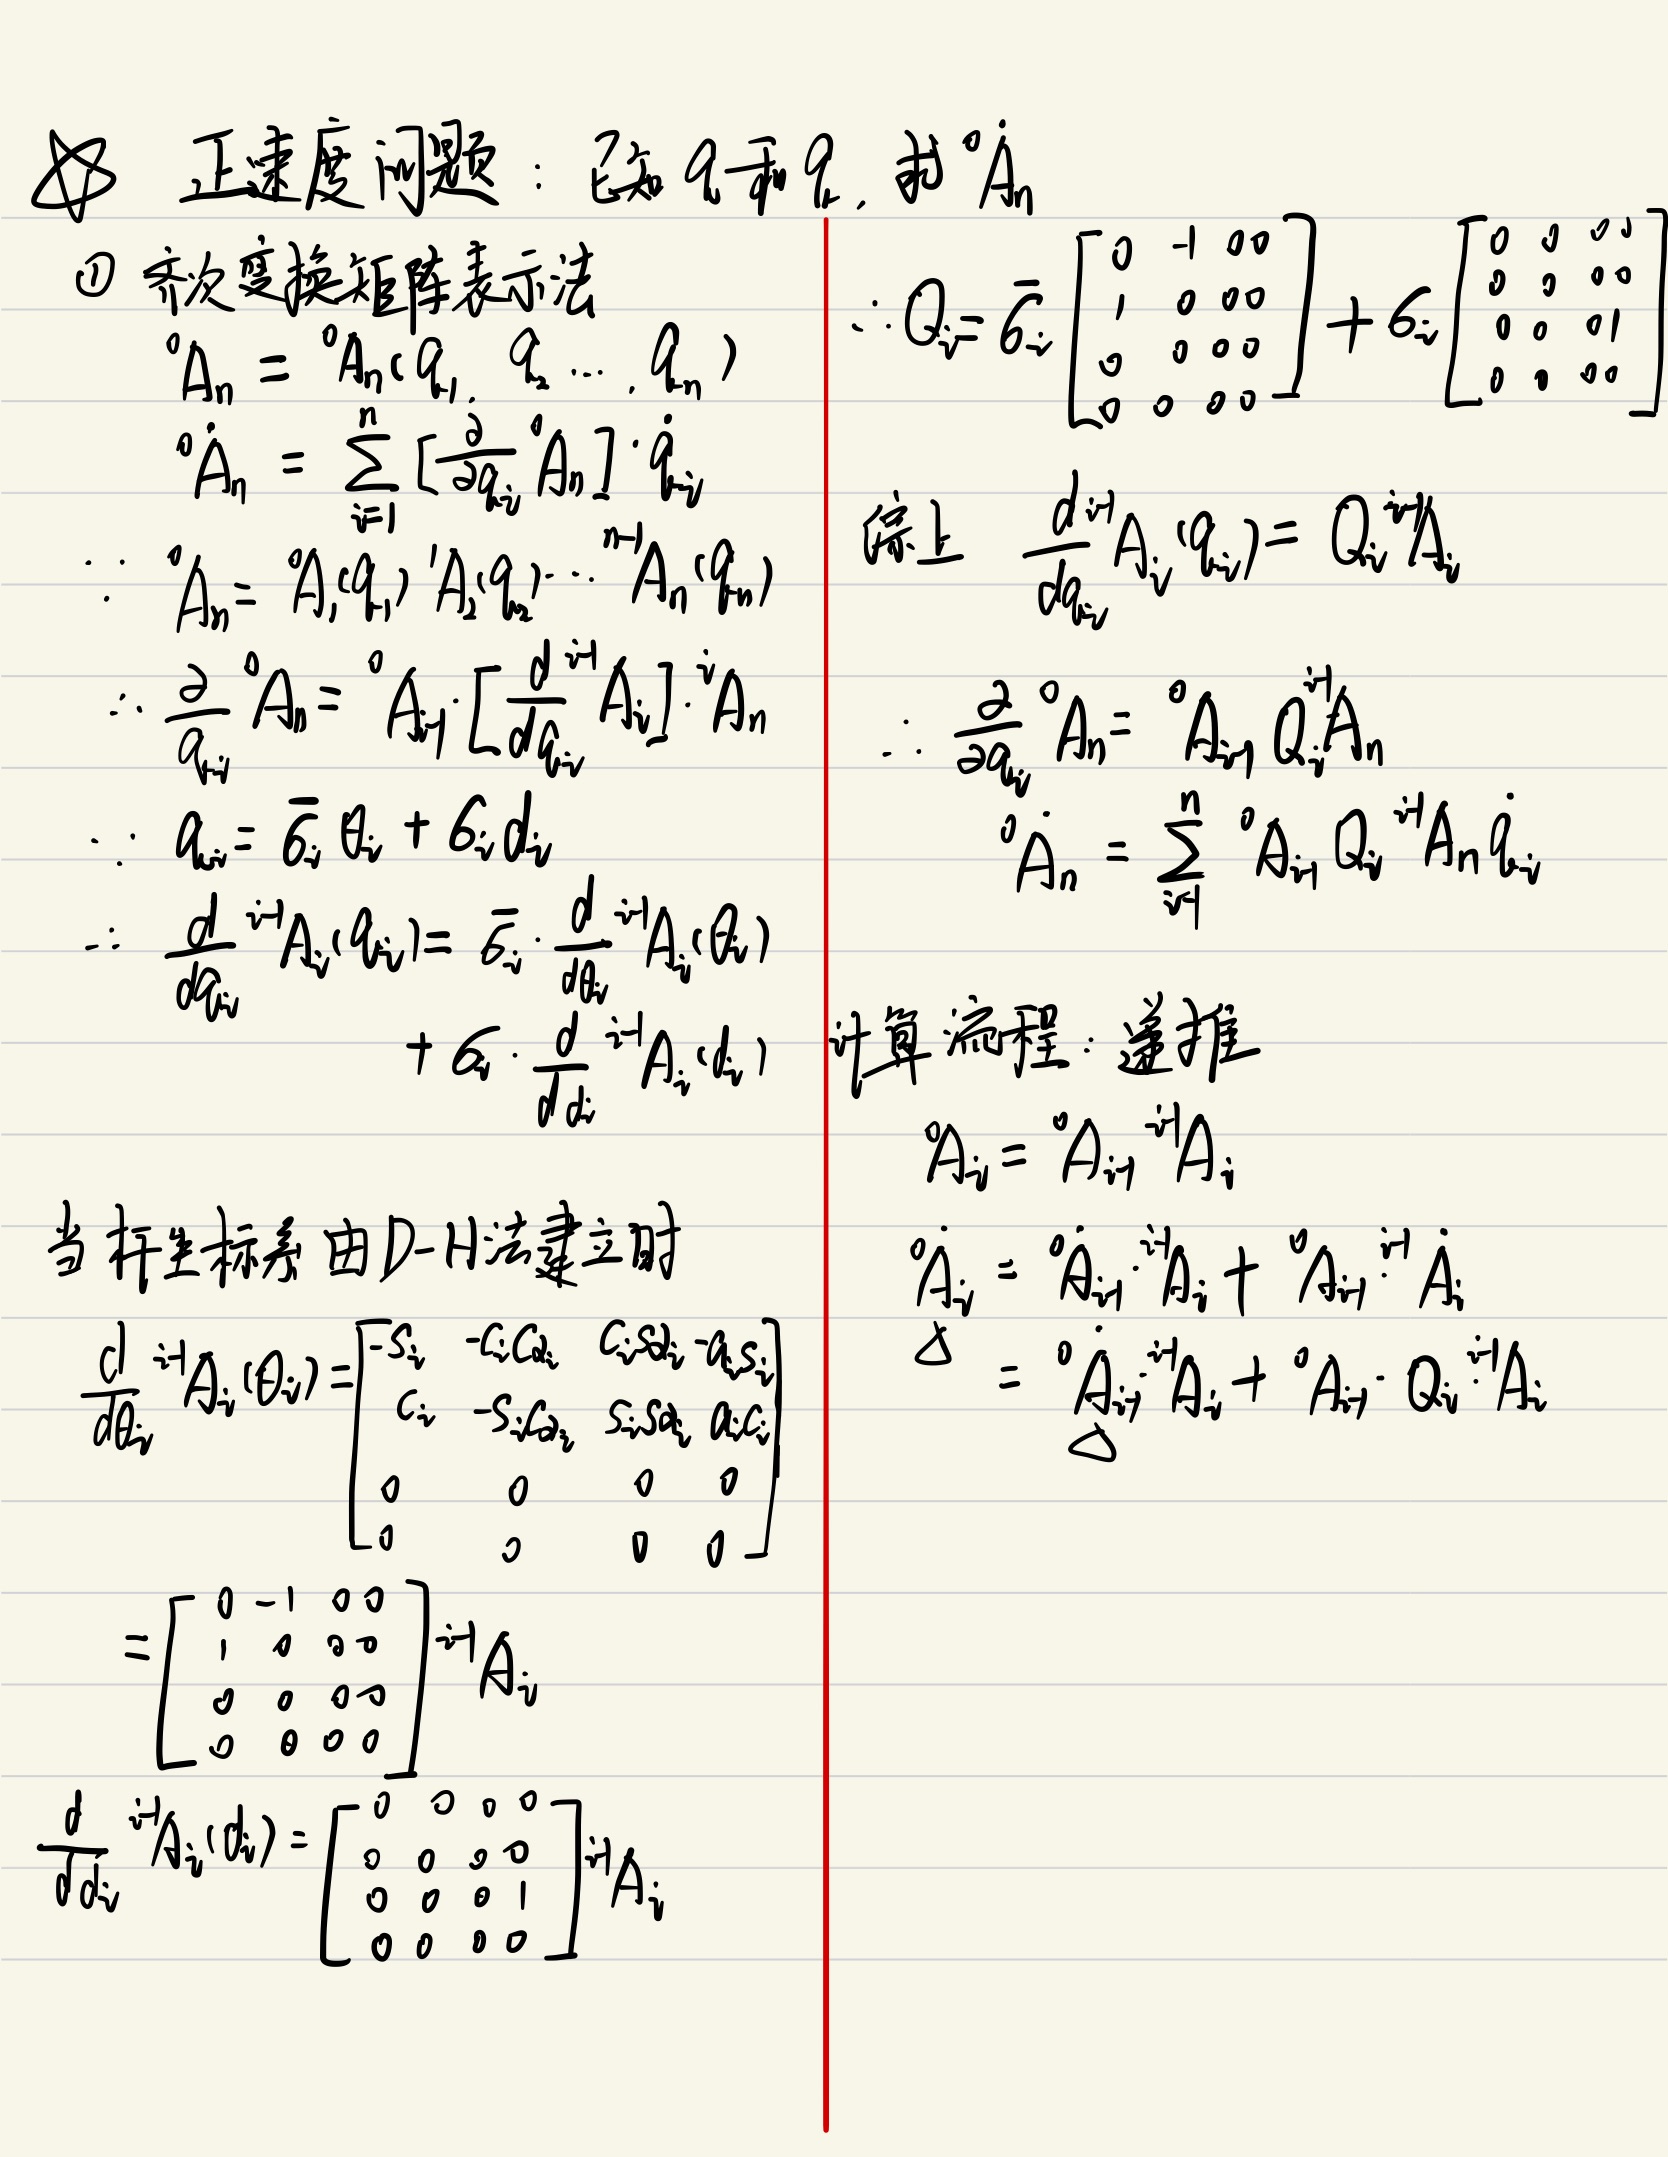 ☆ 正速度问题：已知 q 和 q̇, 求 ⁰Ȧₙ
① 齐次变换矩阵表示法
⁰Aₙ = ⁰Aₙ(q₁, q₂ ..., qₙ)
⁰Ȧₙ = ∑_{i=1}^{n} [∂/∂qᵢ ⁰Aₙ]·q̇ᵢ
∵ ⁰Aₙ = ⁰A₁(q₁) ¹A₂(q₂) ... ⁿ⁻¹Aₙ(qₙ)
∴ ∂/qᵢ ⁰Aₙ = ⁰Aᵢ₋₁·[d/dqᵢ ⁱ⁻¹Aᵢ]·ⁱAₙ
∵ qᵢ = σ̄ᵢ θᵢ + σᵢ dᵢ
∴ d/dqᵢ ⁱ⁻¹Aᵢ(qᵢ) = σ̄ᵢ · d/dθᵢ ⁱ⁻¹Aᵢ(θᵢ)
+ σᵢ · d/ddᵢ ⁱ⁻¹Aᵢ(dᵢ)
当杆坐标系由D-H法建立时
d/dθᵢ ⁱ⁻¹Aᵢ(θᵢ) = [-sᵢ -cᵢcαᵢ cᵢsαᵢ -aᵢsᵢ
cᵢ -sᵢcαᵢ sᵢsαᵢ aᵢcᵢ
0 0 0 0
0 0 0 0]
= [0 -1 0 0
1 0 0 0
0 0 0 0
0 0 0 0] ⁱ⁻¹Aᵢ
d/ddᵢ ⁱ⁻¹Aᵢ(dᵢ) = [0 0 0 0
0 0 0 0
0 0 0 1
0 0 0 0] ⁱ⁻¹Aᵢ
∴ Qᵢ = σ̄ᵢ [0 -1 0 0
1 0 0 0
0 0 0 0
0 0 0 0] + σᵢ [0 0 0 0
0 0 0 0
0 0 0 1
0 0 0 0]
综上 d/dqᵢ ⁱ⁻¹Aᵢ(qᵢ) = Qᵢ ⁱ⁻¹Aᵢ
∴ ∂/∂qᵢ ⁰Aₙ = ⁰Aᵢ₋₁ Qᵢ ⁱ⁻¹Aₙ
⁰Ȧₙ = ∑_{i=1}^{n} ⁰Aᵢ₋₁ Qᵢ ⁱ⁻¹Aₙ q̇ᵢ
计算流程：递推
⁰Aᵢ = ⁰Aᵢ₋₁ ⁱ⁻¹Aᵢ
⁰Ȧᵢ = ⁰Ȧᵢ₋₁·ⁱ⁻¹Aᵢ + ⁰Aᵢ₋₁·ⁱ⁻¹Ȧᵢ
△ = ⁰Ȧᵢ₋₁·ⁱ⁻¹Aᵢ + ⁰Aᵢ₋₁·Qᵢ·ⁱ⁻¹Aᵢ
△